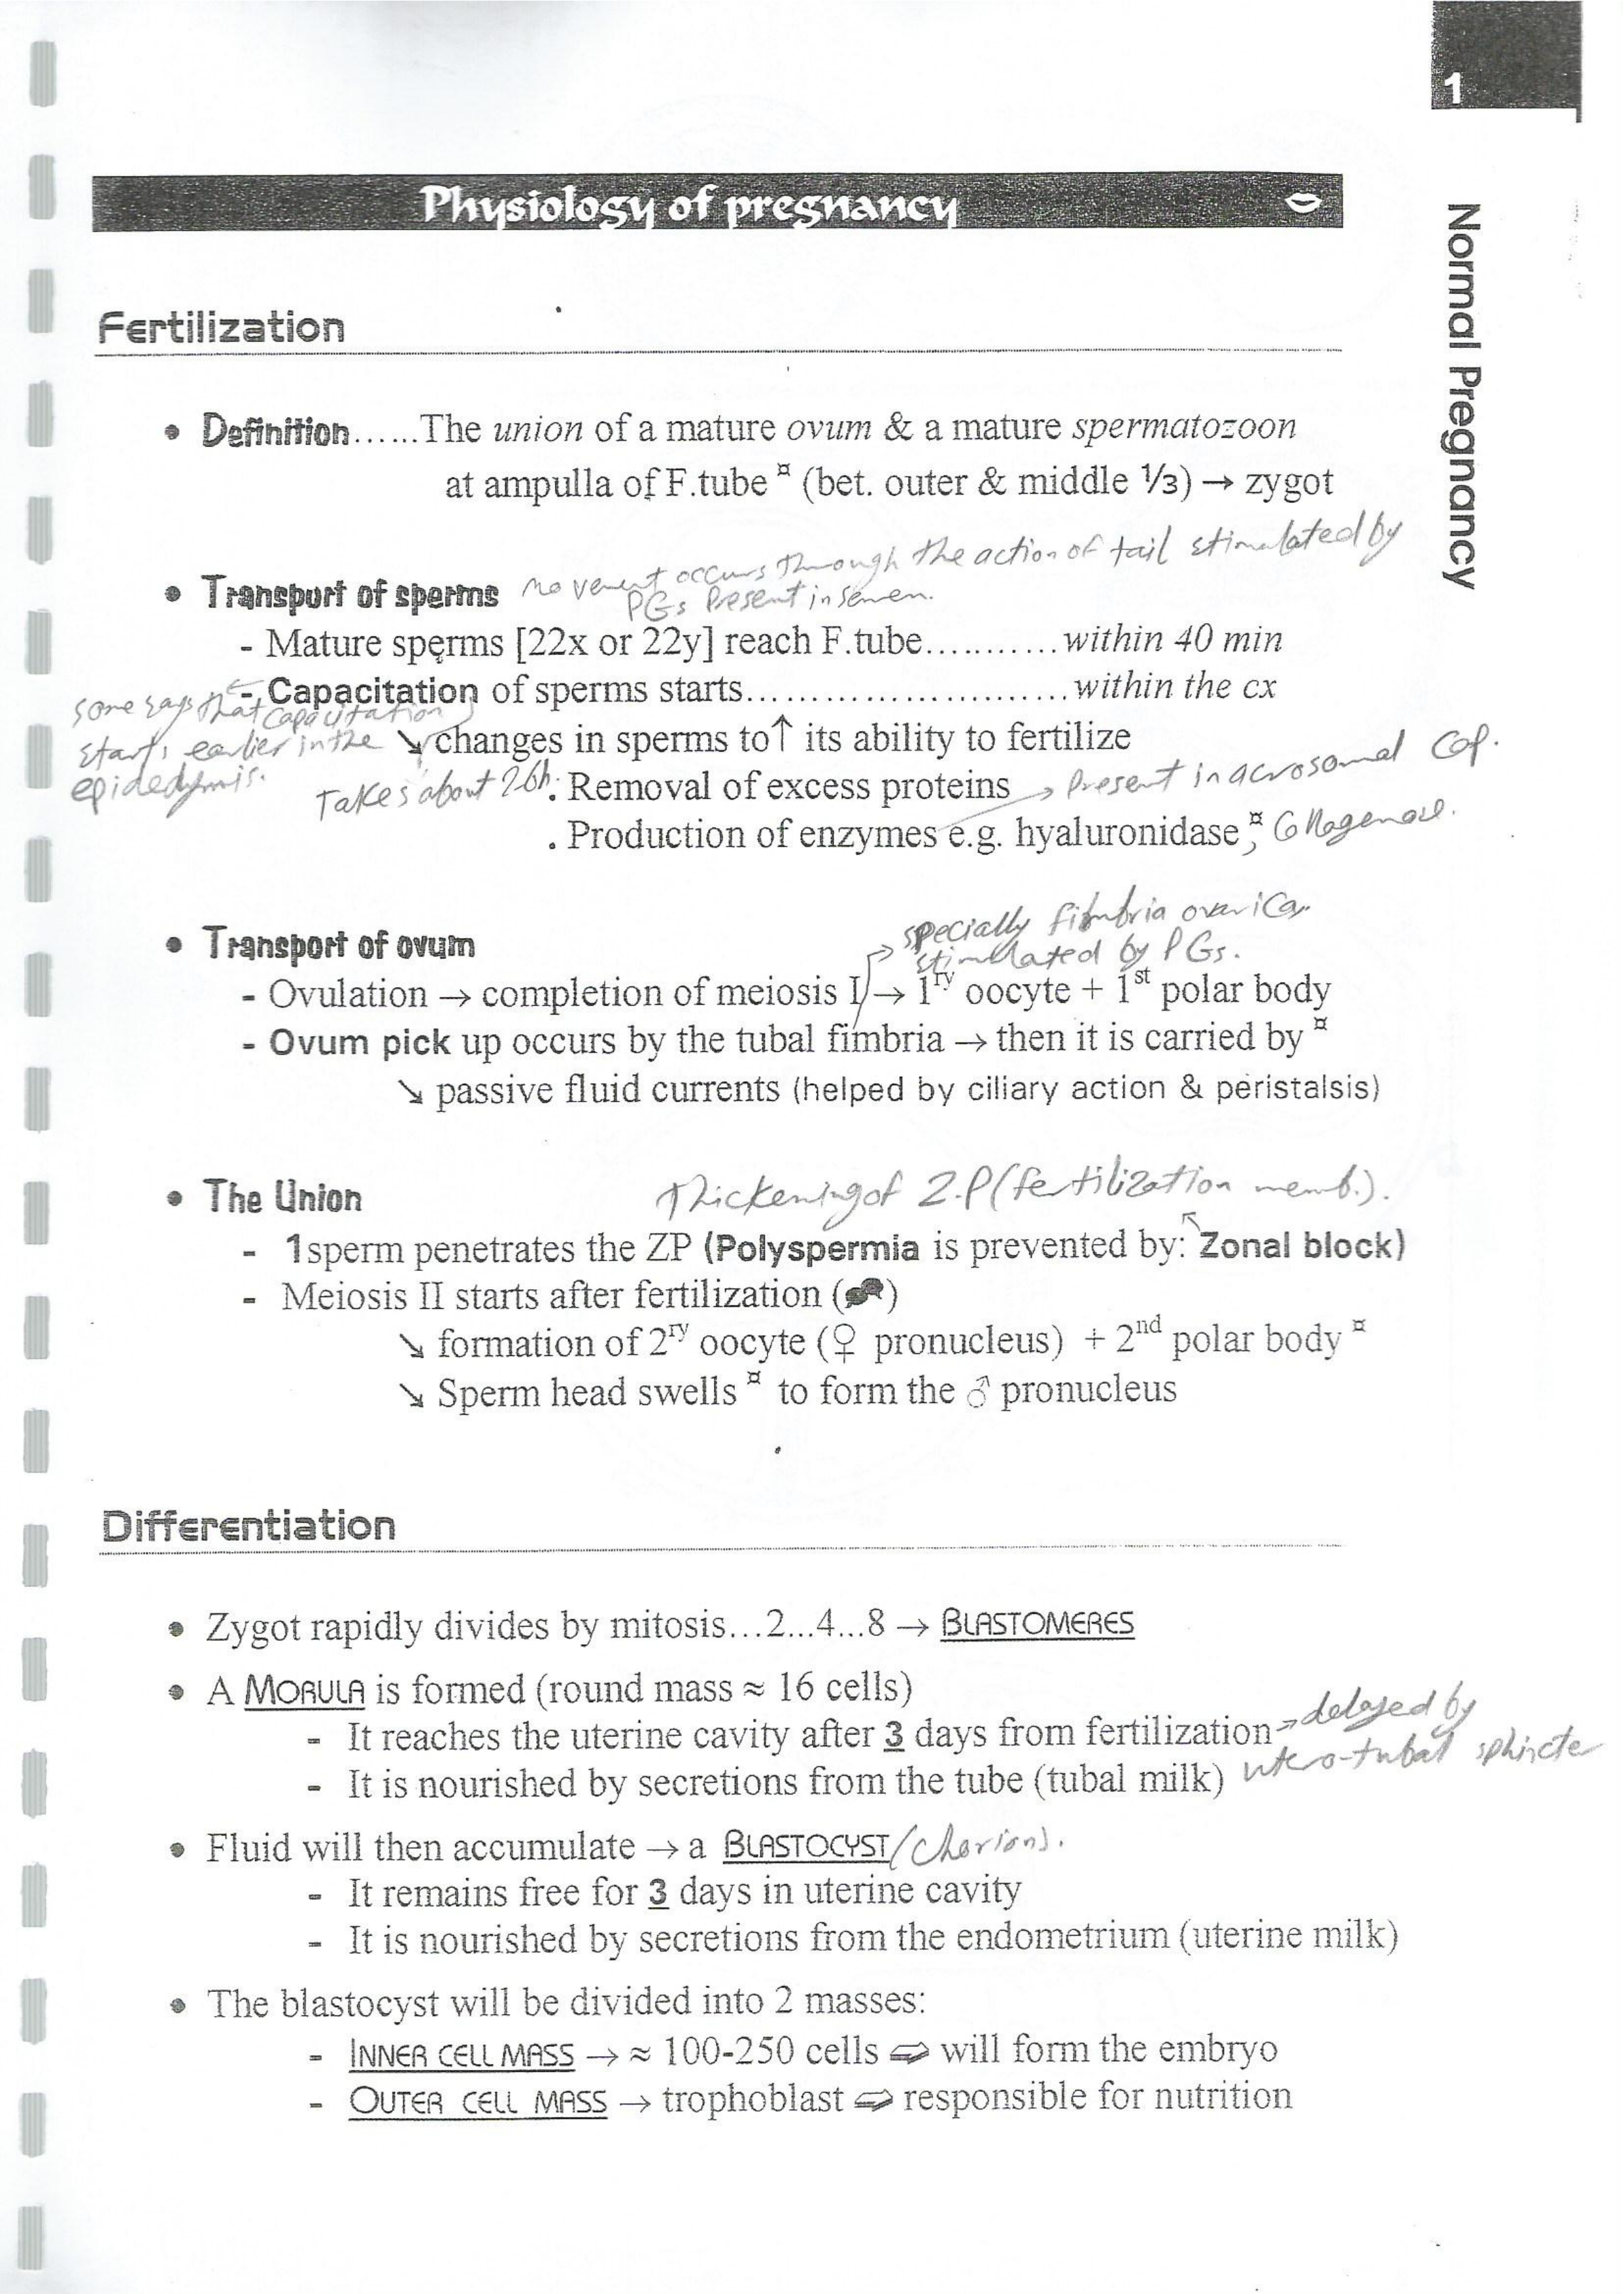 1
Normal Pregnancy
Physiology of pregnancy
Fertilization
• Definition......The union of a mature ovum & a mature spermatozoon
at ampulla of F.tube ¤ (bet. outer & middle ⅓) → zygot
movement occurs through the action of tail stimulated by
PGs Present in semen.
• Transport of sperms
- Mature sperms [22x or 22y] reach F.tube...........within 40 min
- Capacitation of sperms starts...........................within the cx
some says that capacitation
starts earlier in the
epidedymis.
↘ changes in sperms to↑ its ability to fertilize
Takes about
. Removal of excess proteins → Present in acrosomal Cap.
. Production of enzymes e.g. hyaluronidase ¤, Collagenase.
specially fimbria ovarica
stimulated by PGs.
• Transport of ovum
- Ovulation → completion of meiosis I → 1ry oocyte + 1st polar body
- Ovum pick up occurs by the tubal fimbria → then it is carried by ¤
↘ passive fluid currents (helped by ciliary action & peristalsis)
• The Union
Thickening of Z.P (fertilization memb.).
- 1sperm penetrates the ZP (Polyspermia is prevented by: Zonal block)
- Meiosis II starts after fertilization ( )
↘ formation of 2ry oocyte (♀ pronucleus) + 2nd polar body ¤
↘ Sperm head swells ¤ to form the ♂ pronucleus
Differentiation
• Zygot rapidly divides by mitosis...2...4...8 → BLASTOMERES
• A MORULA is formed (round mass ≈ 16 cells)
- It reaches the uterine cavity after 3 days from fertilization → delayed by
utero-tubal sphincte
- It is nourished by secretions from the tube (tubal milk)
• Fluid will then accumulate → a BLASTOCYST (chorion).
- It remains free for 3 days in uterine cavity
- It is nourished by secretions from the endometrium (uterine milk)
• The blastocyst will be divided into 2 masses:
- INNER CELL MASS → ≈ 100-250 cells ⇨ will form the embryo
- OUTER CELL MASS → trophoblast ⇨ responsible for nutrition